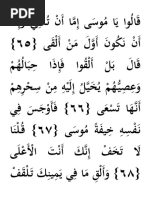 قَالُوا يَا مُوسَى إِمَّا أَنْ تُلْقِيَ وَإِمَّا
أَنْ نَكُونَ أَوَّلَ مَنْ أَلْقَى {٦٥}
قَالَ بَلْ أَلْقُوا فَإِذَا حِبَالُهُمْ
وَعِصِيُّهُمْ يُخَيَّلُ إِلَيْهِ مِنْ سِحْرِهِمْ
أَنَّهَا تَسْعَى {٦٦} فَأَوْجَسَ فِي
نَفْسِهِ خِيفَةً مُوسَى {٦٧} قُلْنَا
لَا تَخَفْ إِنَّكَ أَنْتَ الْأَعْلَى
{٦٨} وَأَلْقِ مَا فِي يَمِينِكَ تَلْقَفْ